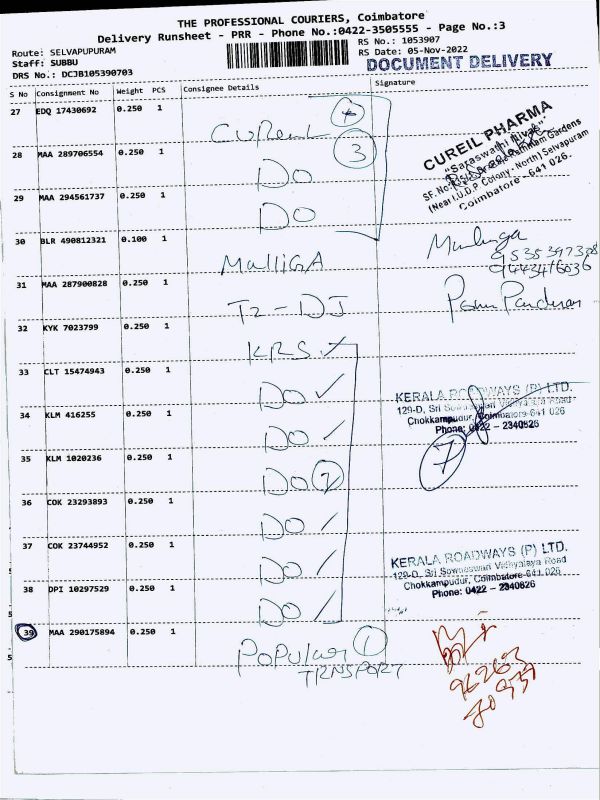 THE PROFESSIONAL COURIERS, Coimbatore
Delivery Runsheet - PRR - Phone No.:0422-3505555 - Page No.:3
Route: SELVAPUPURAM
Staff: SUBBU
DRS No.: DCJB105390703
RS No.: 1053907
RS Date: 05-Nov-2022
DOCUMENT DELIVERY
S No Consignment No Weight PCS Consignee Details Signature
27 EDQ 17430692 0.250 1
28 MAA 289706554 0.250 1 DO 3
29 MAA 294561737 0.250 1 DO
CUREIL PHARMA
"Saraswathi Nivas"
(Near I.U.D.P Colony - North) Selvapuram
Coimbatore - 641 026.
30 BLR 490812321 0.100 1 MalliGA
31 MAA 287900828 0.250 1 T2-DJ
32 KYK 7023799 0.250 1 KRS
33 CLT 15474943 0.250 1 DO
34 KLM 416255 0.250 1 DO
35 KLM 1020236 0.250 1 DO 7
36 COK 23293893 0.250 1 DO
37 COK 23744952 0.250 1 DO
38 DPI 10297529 0.250 1 DO
39 MAA 290175894 0.250 1 Popular 1
TRNSPORT
KERALA ROADWAYS (P) LTD.
129-D, Sri Sowdeswari Vidhyalaya Road
Chokkampudur, Coimbatore-641 026
Phone: 0422 - 2340826
7
KERALA ROADWAYS (P) LTD.
129-D, Sri Sowdeswari Vidhyalaya Road
Chokkampudur, Coimbatore-641 026
Phone: 0422 - 2340826
96263